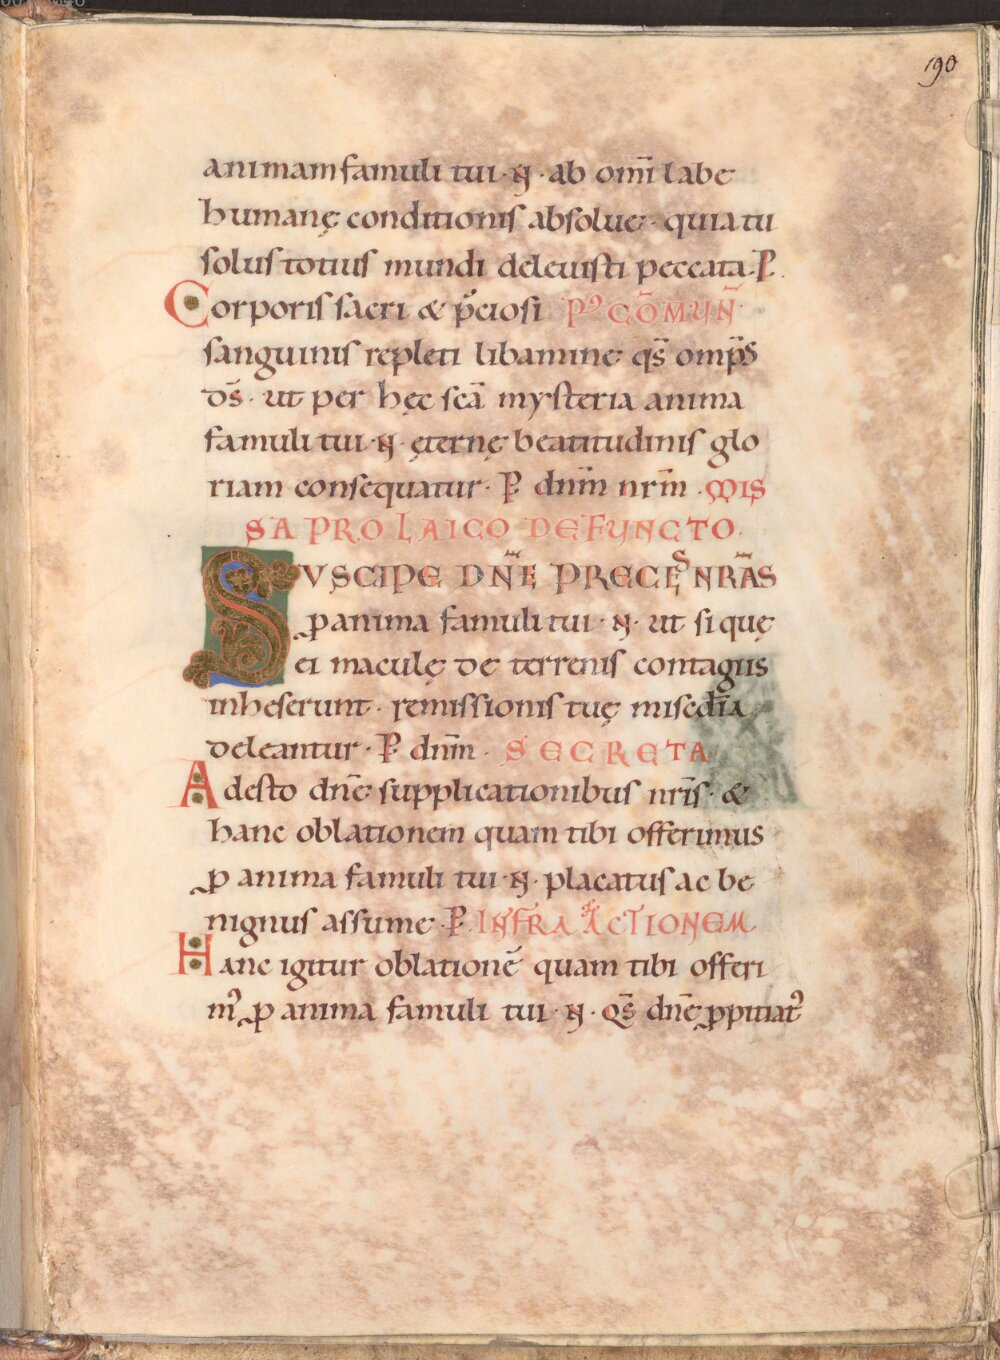 190
animam famuli tui · N · ab om̄i labe
humanę conditionis absolue · quia tu
solus totius mundi deleuisti peccata · P.
Corporis sacri & p̄ciosi Pꝰ CŌMUN̄
sanguinis repleti libamine qs̄ omp̄s
ds̄ · ut per hęc sc̄a mysteria anima
famuli tui · N · ęternę beatitudinis glo
riam consequatur · P dnm̄ nrm̄ · MIS
SA PRO LAICO DEFUNCTO.
SVSCIPE DN̄E PRECES NRĀS
ꝓ anima famuli tui · N · ut si quę
ei maculę de terrenis contagiis
inheserunt · remissionis tuę misc̄dia
deleantur · P dnm̄ · SECRETA
Adesto dn̄e supplicationibus nr̄is · &
hanc oblationem quam tibi offerimus
ꝓ anima famuli tui · N · placatus ac be
nignus assume · P INFRA ACTIONEM
Hanc igitur oblationē quam tibi offeri
mꝰ ꝓ anima famuli tui · N · Qs̄ dn̄e ꝓpitiatꝰ